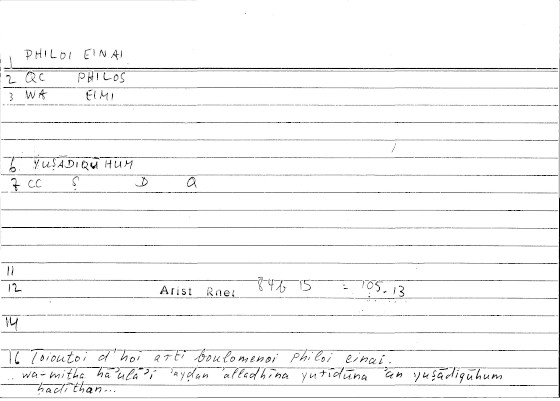 1 PHILOI EINAI
2 QC PHILOS
3 WA EIMI
6 YUṢĀDIQŪHUM
7 CC Ṣ D Q
11
12 Arist Rhet 84b 15 = 105.13
14
16 Toioutoi d'hoi arti boulomenoi philoi einai.
wa-mitha hā'ulā'i 'ayḍan 'alladhīna yurīdūna 'an yuṣādiqūhum
ḥadīthan...